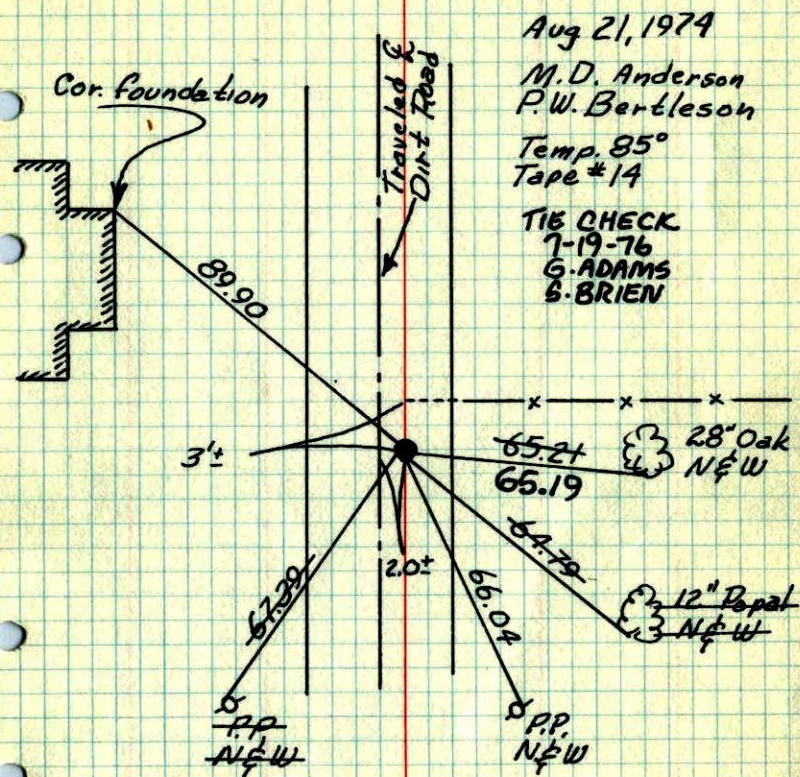 Aug 21, 1974
M.D. Anderson
P.W. Bertleson
Temp. 85°
Tape #14
TIE CHECK
7-19-76
G. ADAMS
S. BRIEN
Cor. foundation
Traveled ℄
Dirt Road
89.90
3'±
65.21
65.19
28" Oak
N & W
64.79
12" Popal
N & W
2.0±
67.39
66.04
P.P.
N & W
P.P.
N & W